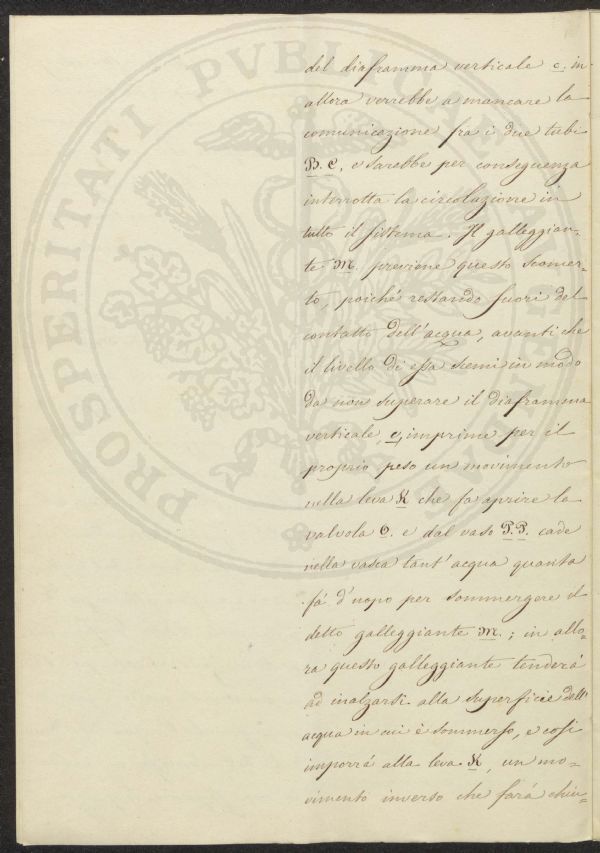 del diaframma verticale c; in
allora verrebbe a mancare la
comunicazione fra i due tubi
B. C, e sarebbe per conseguenza
interrotta la circolazione in
tutto il sistema. Il galleggian-
te M. previene questo sconcer-
to, poiché restando fuori del
contatto dell'acqua, avanti che
il livello di essa scemi in modo
da non superare il diaframma
verticale, c, imprime per il
proprio peso un movimento
nella leva K che fa aprire la
valvola O. e dal vaso P.P. cade
nella vasca tant'acqua quanta
fá d'uopo per sommergere il
detto galleggiante M.; in allo-
ra questo galleggiante tenderá
ad inalzarsi alla superficie dell'
acqua in cui é sommerso, e cosi
imporrá alla leva K, un mo-
vimento inverso che fará chiu-
PROSPERITATI PVBLICAE